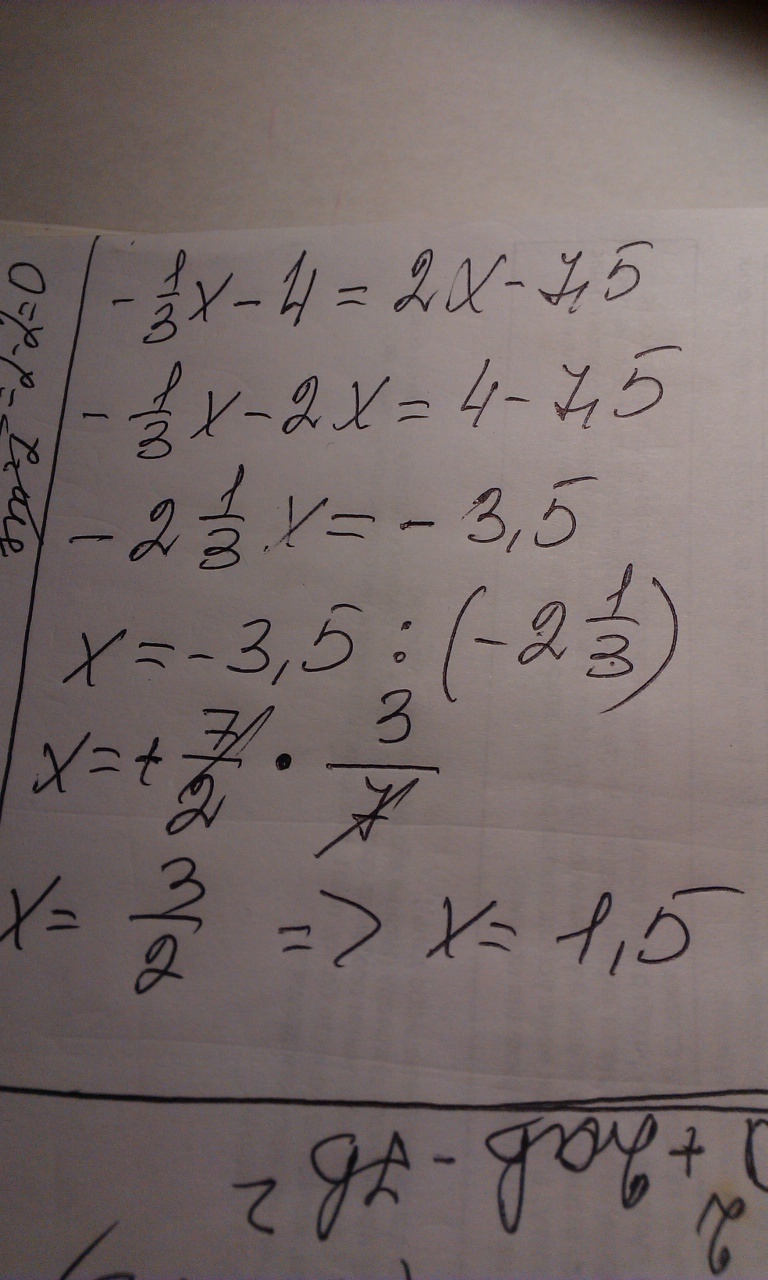 -1/3x - 4 = 2x - 7,5
-1/3x - 2x = 4 - 7,5
-2 1/3 x = -3,5
x = -3,5 : (-2 1/3)
x = + 7/2 • 3/7
x = 3/2 => x = 1,5